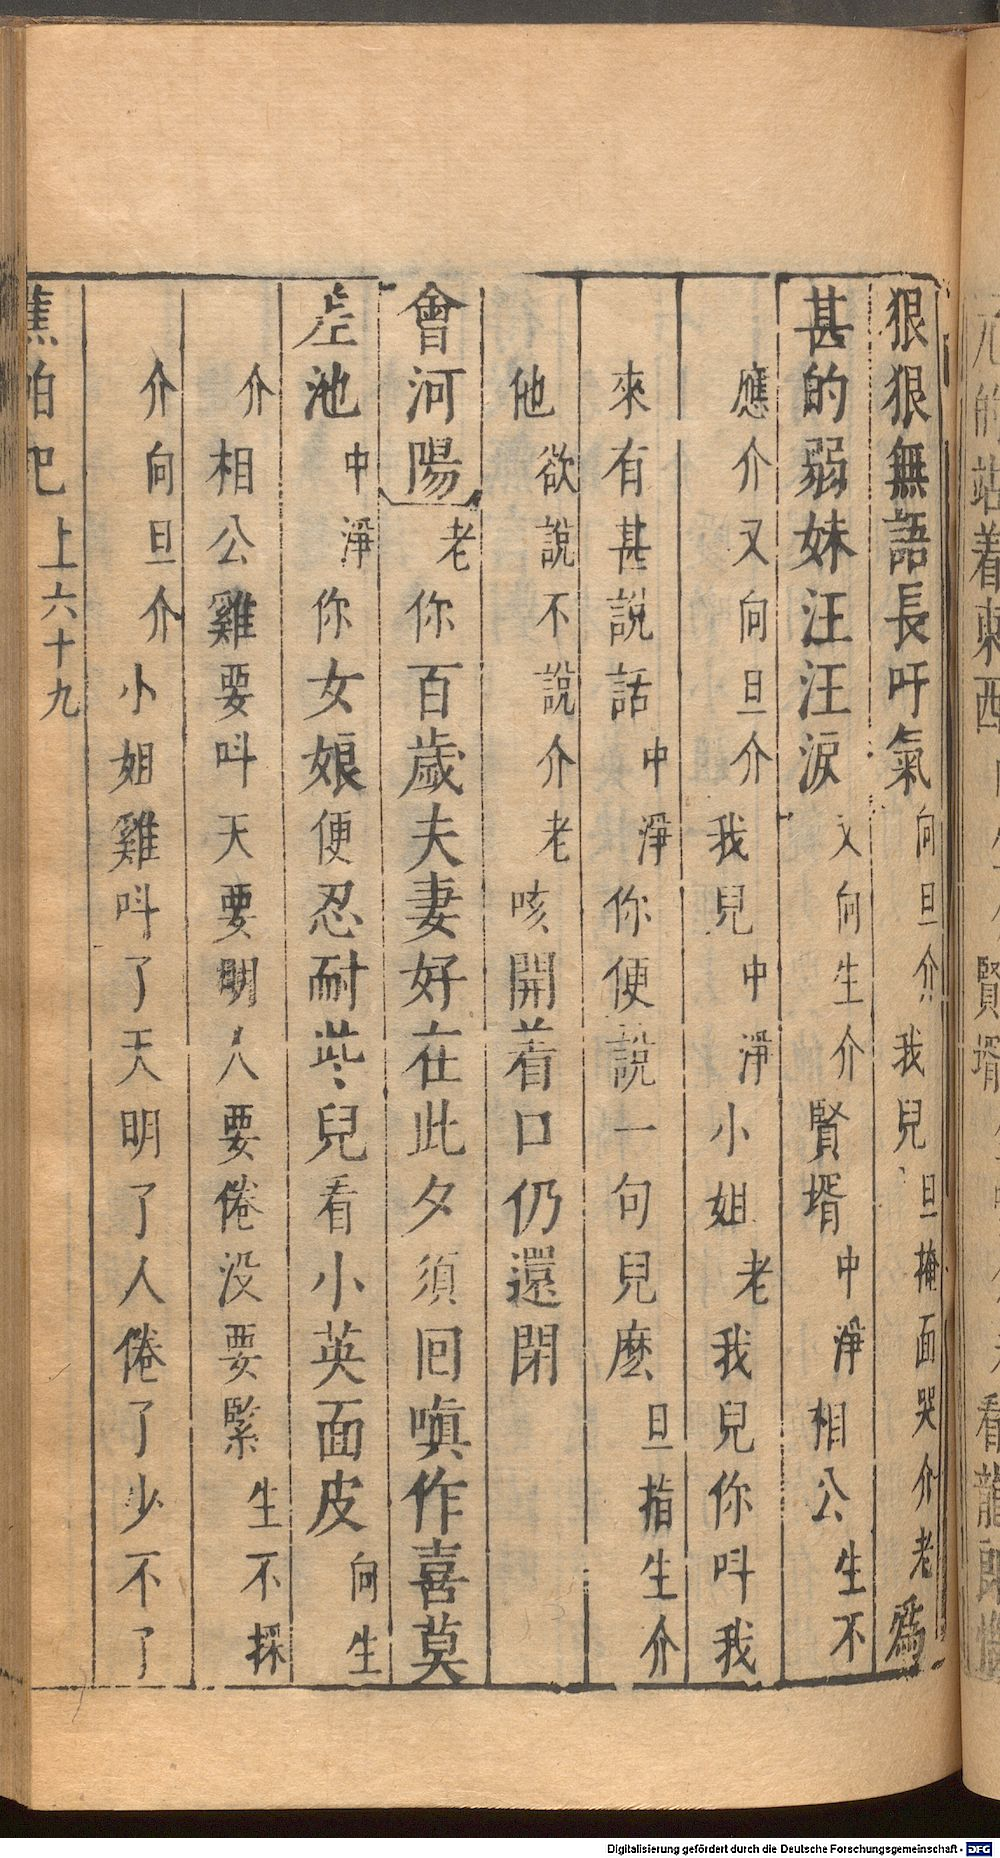 狠狠無語長吁氣向旦介我兒旦掩面哭介老爲
甚的弱妹汪汪淚又向生介賢壻中淨相公生不
應介又向旦介我兒中淨小姐老我兒你呌我
來有甚說話中淨你便說一句兒麽旦指生介
他欲說不說介老咳開着口仍還閉
會河陽老你百歲夫妻好在此夕須囘嗔作喜莫
差池中淨你女娘便忍耐些兒看小英面皮向生
介相公雞要呌天要明人要倦没要緊生不採
介向旦介小姐雞呌了天明了人倦了少不了
蕉帕𠃵上六十九
的站着東西
賢壻
看龍
Digitalisierung gefördert durch die Deutsche Forschungsgemeinschaft - DFG